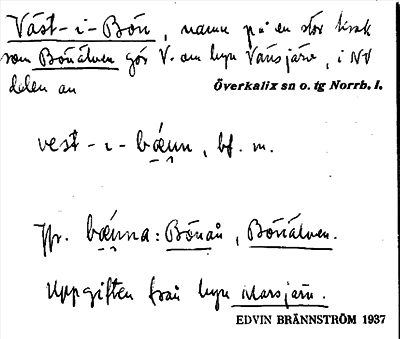 Väst-i-Bön, namn på en stor krok
som Bönälven gör V. om byn Vänsjärv, i NV
delen av Överkalix sn o. tg Norrb. l.
vest-ı-bǽnn, bf. m.
Jfr. bǽnna: Bönån, Bönälven.
Uppgiften från byn Marsjärv.
EDVIN BRÄNNSTRÖM 1937